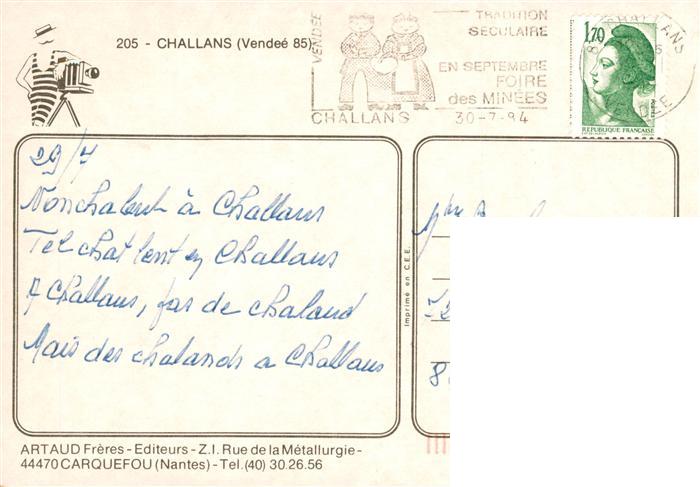 205 - CHALLANS (Vendeé 85)
VENDEE
TRADITION
SECULAIRE
EN SEPTEMBRE
FOIRE
des MINÉES
CHALLANS
30-7-84
1,70
REPUBLIQUE FRANÇAISE
CHALLANS
29/7
Nonchalent à Challans
Tel chat lent en Challans
A Challans, pas de chaland
Mais des chalands a Challans
Mme
Imprimé en C.E.E.
8
ARTAUD Frères - Editeurs - Z.I. Rue de la Métallurgie -
44470 CARQUEFOU (Nantes) - Tel. (40) 30.26.56